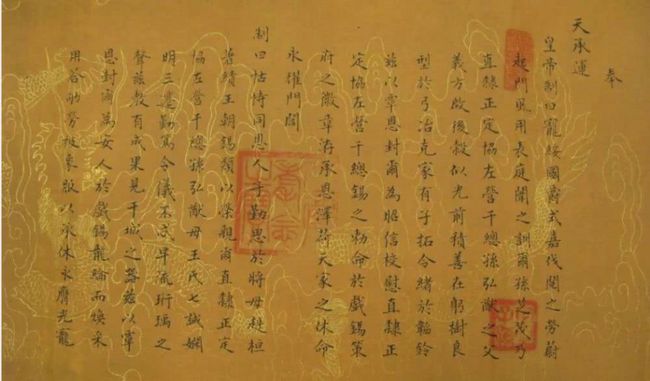 奉
天承運
皇帝制曰寵綏國爵式嘉伐閱之勞蔚
起門風用表庭闈之訓爾孫芝茂乃
直隸正定協左營千總孫弘猷之父
義方啟後穀似光前積善在躬樹良
型於弓冶克家有子拓令緒於韜鈐
茲以覃恩封爾為昭信校尉直隸正
定協左營千總錫之勅命於戲錫策
府之徽章洊承恩澤荷天家之休命
永燿門閭
制曰怙恃同恩人子勤思於將母赳桓
著績王朝錫類以榮親爾直隸正定
協左營千總孫弘猷母王氏七誡嫻
明三遷勤篤令儀不忒早流珩瑀之
聲慈教有成果見干城之器茲以覃
恩封爾為安人於戲錫龍綸而煥采
用答劬勞被象服以承休永膺光寵